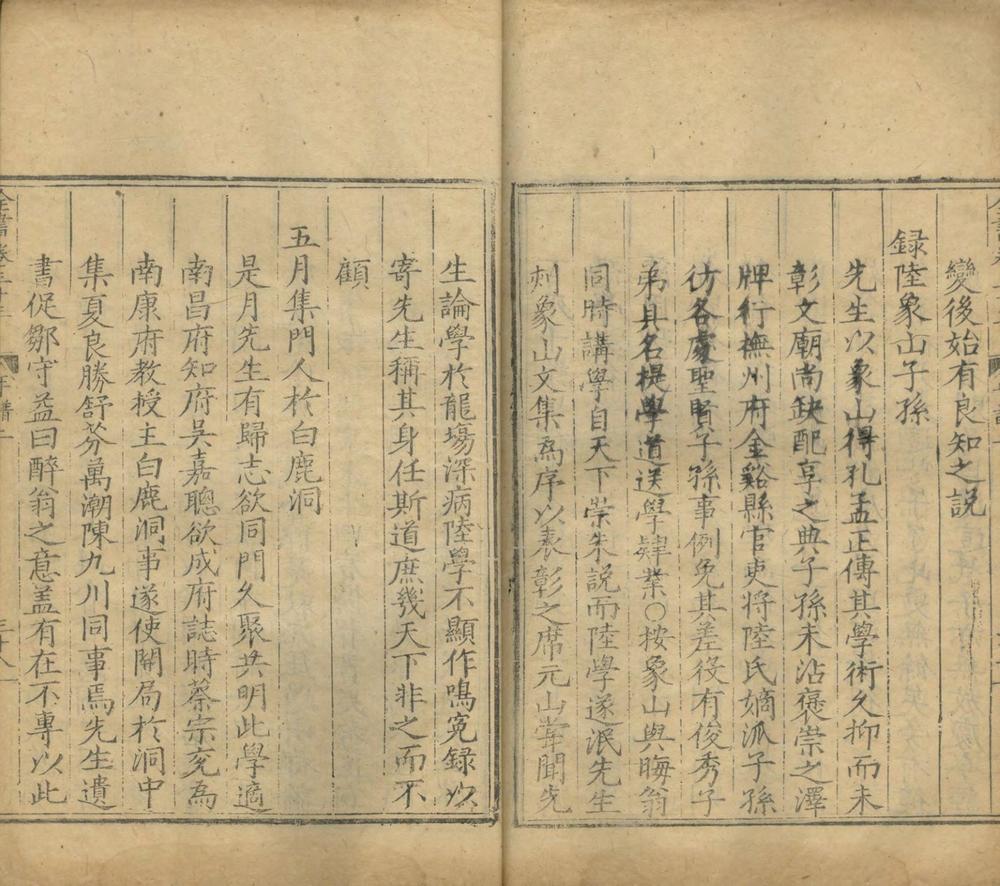 變後始有良知之說
録陸象山子孫
先生以象山得孔孟正傳其學術久抑而未
彰文廟尚缺配享之典子孫未沾褒崇之澤
牌行撫州府金谿縣官吏將陸氏嫡派子孫
彷各處聖賢子孫事例免其差役有俊秀子
弟具名提學道送學肄業○按象山與晦翁
同時講學自天下崇朱說而陸學遂泯先生
刻象山文集為序以表彰之席元山嘗聞先
生論學於龍場深病陸學不顯作鳴冤録以
寄先生稱其身任斯道庶幾天下非之而不
顧
五月集門人於白鹿洞
是月先生有歸志欲同門久聚共明此學適
南昌府知府吳嘉聰欲成府誌時蔡宗兗為
南康府教授主白鹿洞事遂使開局於洞中
集夏良勝舒芬萬潮陳九川同事焉先生遺
書促鄒守益曰醉翁之意盖有在不專以此